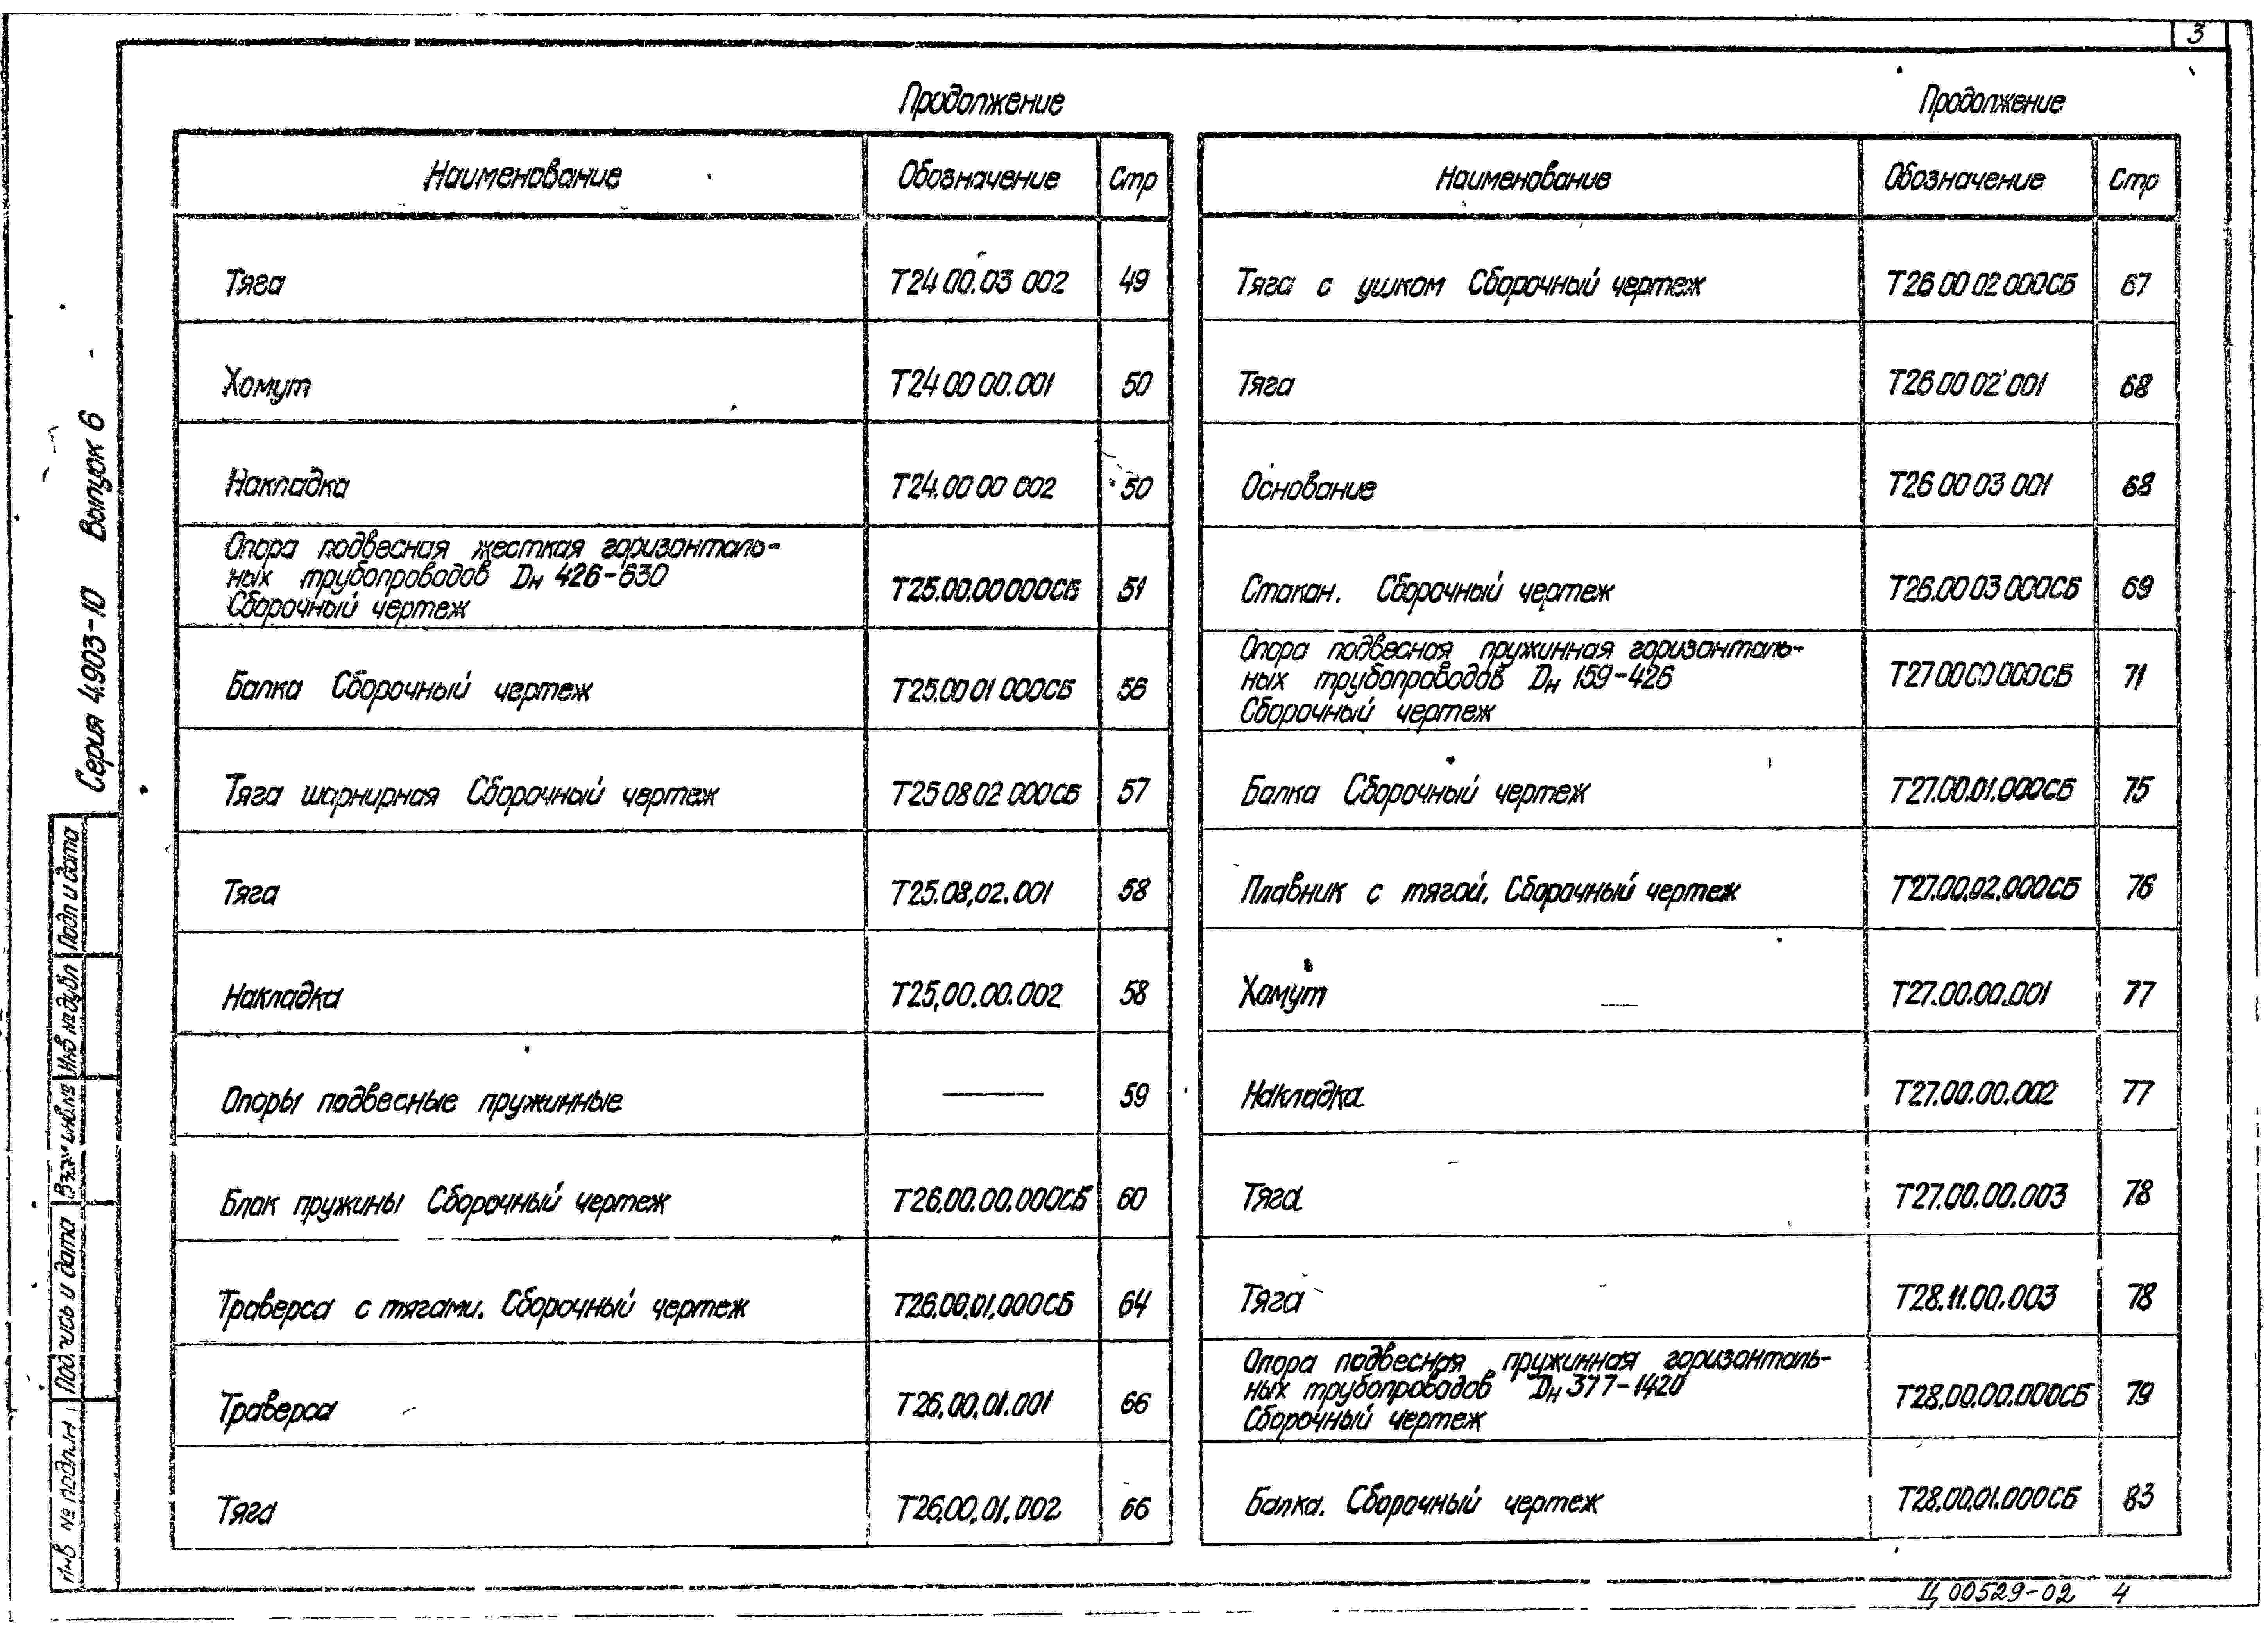 3
Продолжение
Наименование Обозначение Стр
Тяга Т24 00.03 002 49
Хомут Т24 00 00.001 50
Накладка Т24.00 00 002 50
Опора подвесная жесткая горизонталь-
ных трубопроводов Дн 426-630
Сборочный чертеж Т25.00.00 000СБ 51
Балка Сборочный чертеж Т25.00 01 000СБ 56
Тяга шарнирная Сборочный чертеж Т25 08 02 000СБ 57
Тяга Т25.08.02.001 58
Накладка Т25.00.00.002 58
Опоры подвесные пружинные — 59
Блок пружины Сборочный чертеж Т26.00.00.000СБ 60
Траверса с тягами. Сборочный чертеж Т26.00.01.000СБ 64
Траверса Т26.00.01.001 66
Тяга Т26.00.01.002 66
Продолжение
Наименование Обозначение Стр
Тяга с ушком Сборочный чертеж Т26 00 02 000СБ 67
Тяга Т26 00 02 001 68
Основание Т26 00 03 001 68
Стакан. Сборочный чертеж Т26.00 03 000СБ 69
Опора подвесная пружинная горизонталь-
ных трубопроводов Дн 159-426
Сборочный чертеж Т27 00 00 000СБ 71
Балка Сборочный чертеж Т27.00.01.000СБ 75
Плавник с тягой. Сборочный чертеж Т27.00.02.000СБ 76
Хомут Т27.00.00.001 77
Накладка Т27.00.00.002 77
Тяга Т27.00.00.003 78
Тяга Т28.11.00.003 78
Опора подвесная пружинная горизонталь-
ных трубопроводов Дн 377-1420
Сборочный чертеж Т28.00.00.000СБ 79
Балка. Сборочный чертеж Т28.00.01.000СБ 83
Серия 4.903-10 Выпуск 6
Подп и дата
Инв № дубл
Взам инв №
Подпись и дата
Инв № подлин
Ц 00529-02 4